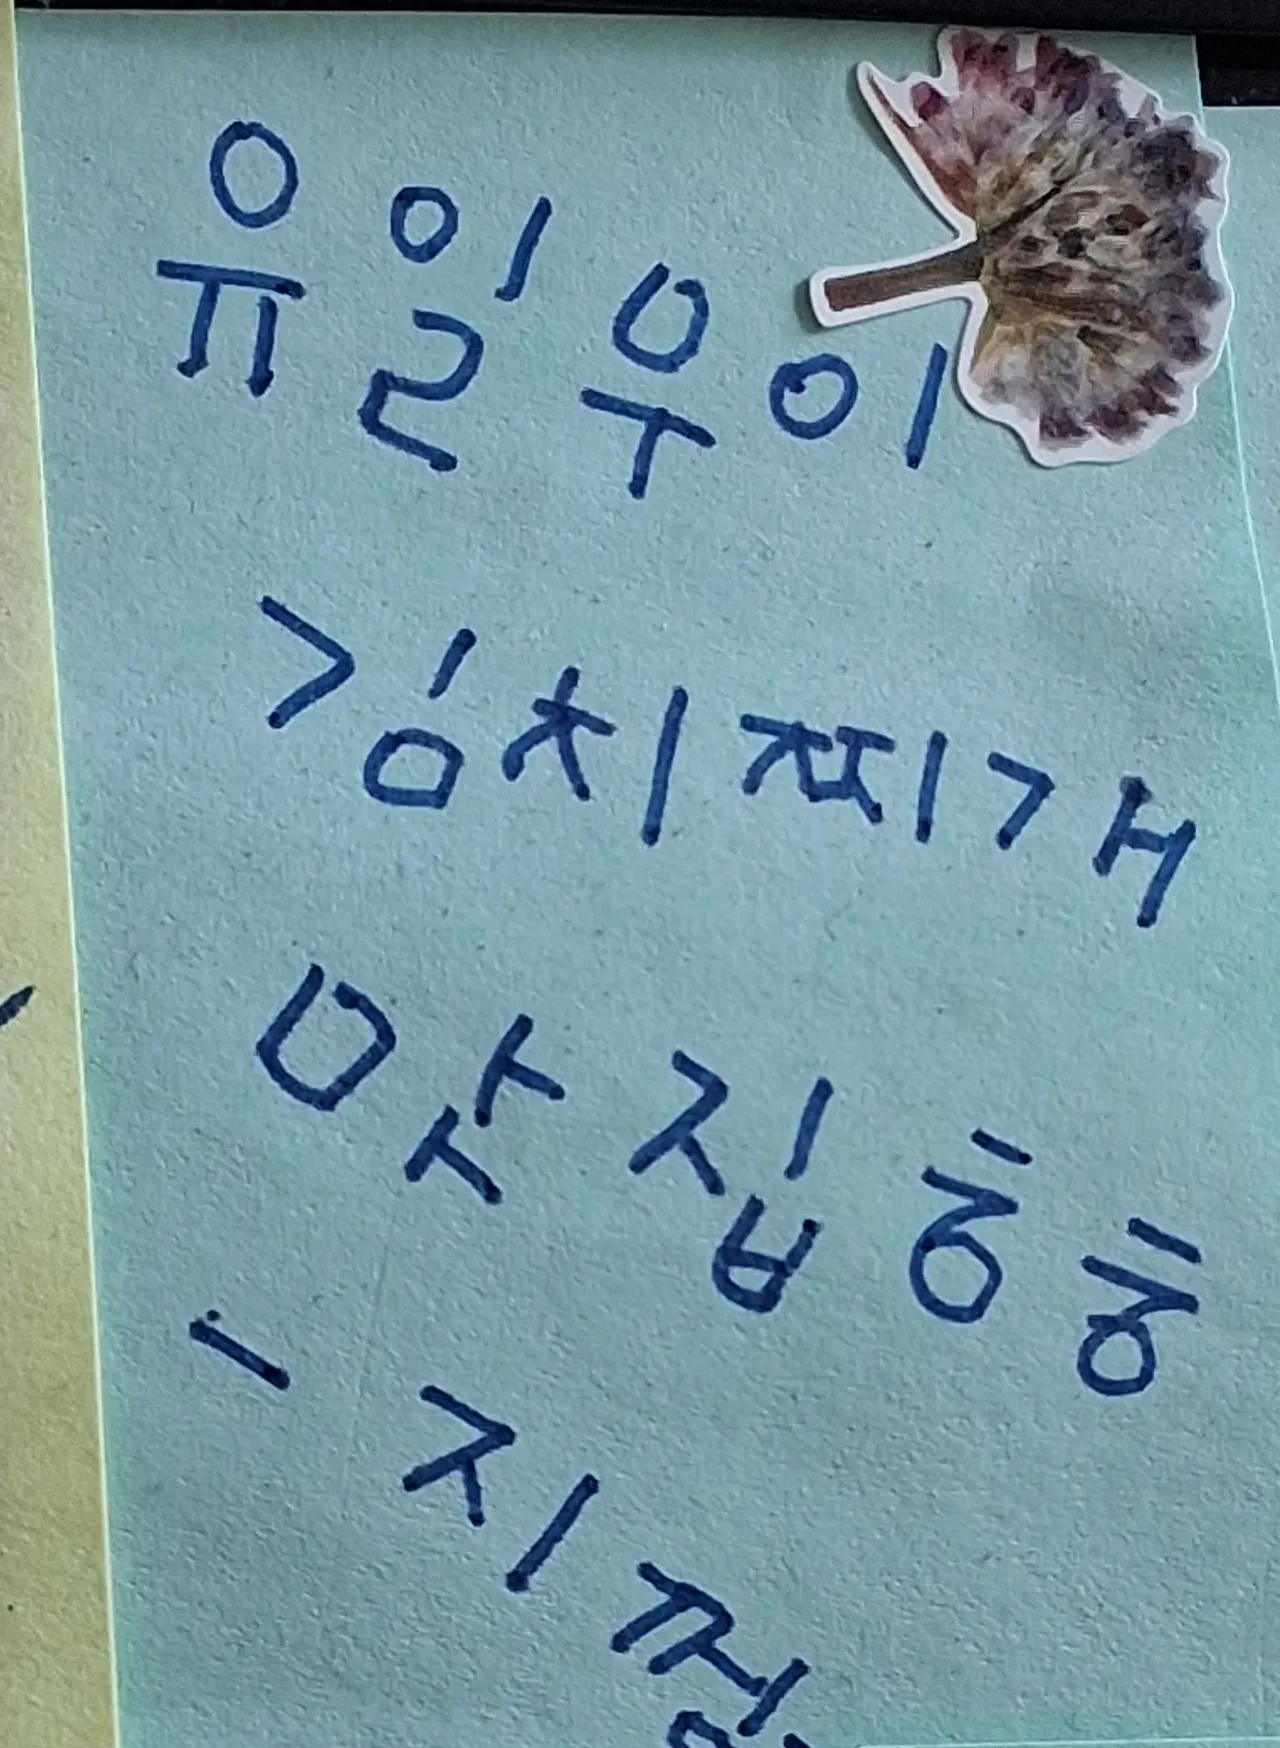 유일우이
김치찌개
맛집ㅎㅎ